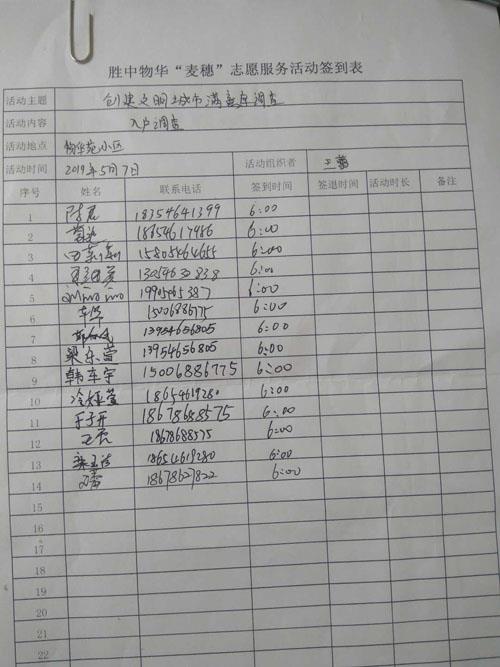 胜中物华“麦穗”志愿服务活动签到表
活动主题 创建文明城市满意度调查
活动内容 入户调查
活动地点 物华苑小区
活动时间 2019年5月7日 活动组织者 王蕾
序号 姓名 联系电话 签到时间 签退时间 活动时长 备注
1 18354641399 6:00
2 18854617986 6:00
3 15805464655 6:00
4 13054630838 6:00
5 6:00
6 15006886775 6:00
7 13954656805 6:00
8 梁东萱 13954656805 6:00
9 韩车宇 15006886775 6:00
10 18654619280 6:00
11 于子开 18678688575 6:00
12 18678688575 6:00
13 18654619280 6:00
14 18678627822 6:00
15
16
17
18
19
20
21
22